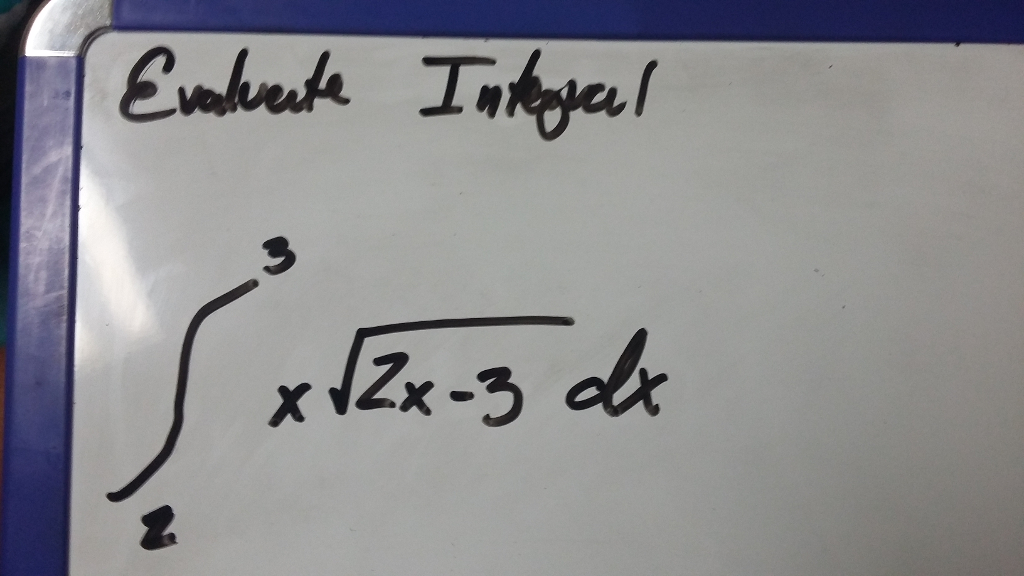 Evaluate Integral
∫₂³ x√(2x-3) dx